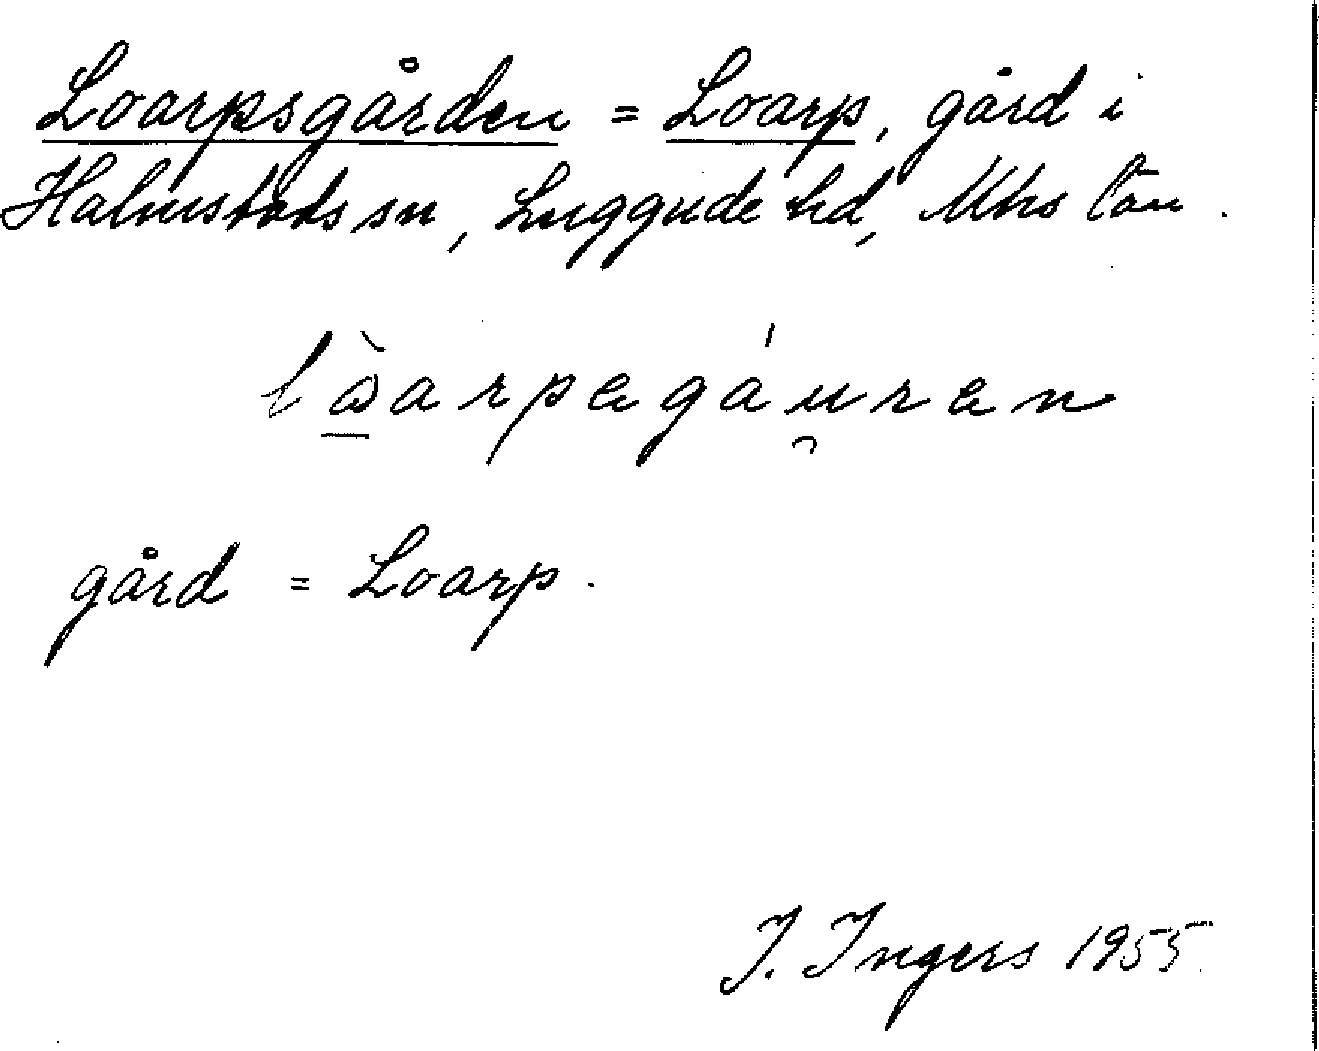 Loarpsgården = Loarp, gård i
Halmstads sn, Luggude hd, Mhs län.
lòarpegáu̯ren
gård = Loarp.
I. Ingers 1955.